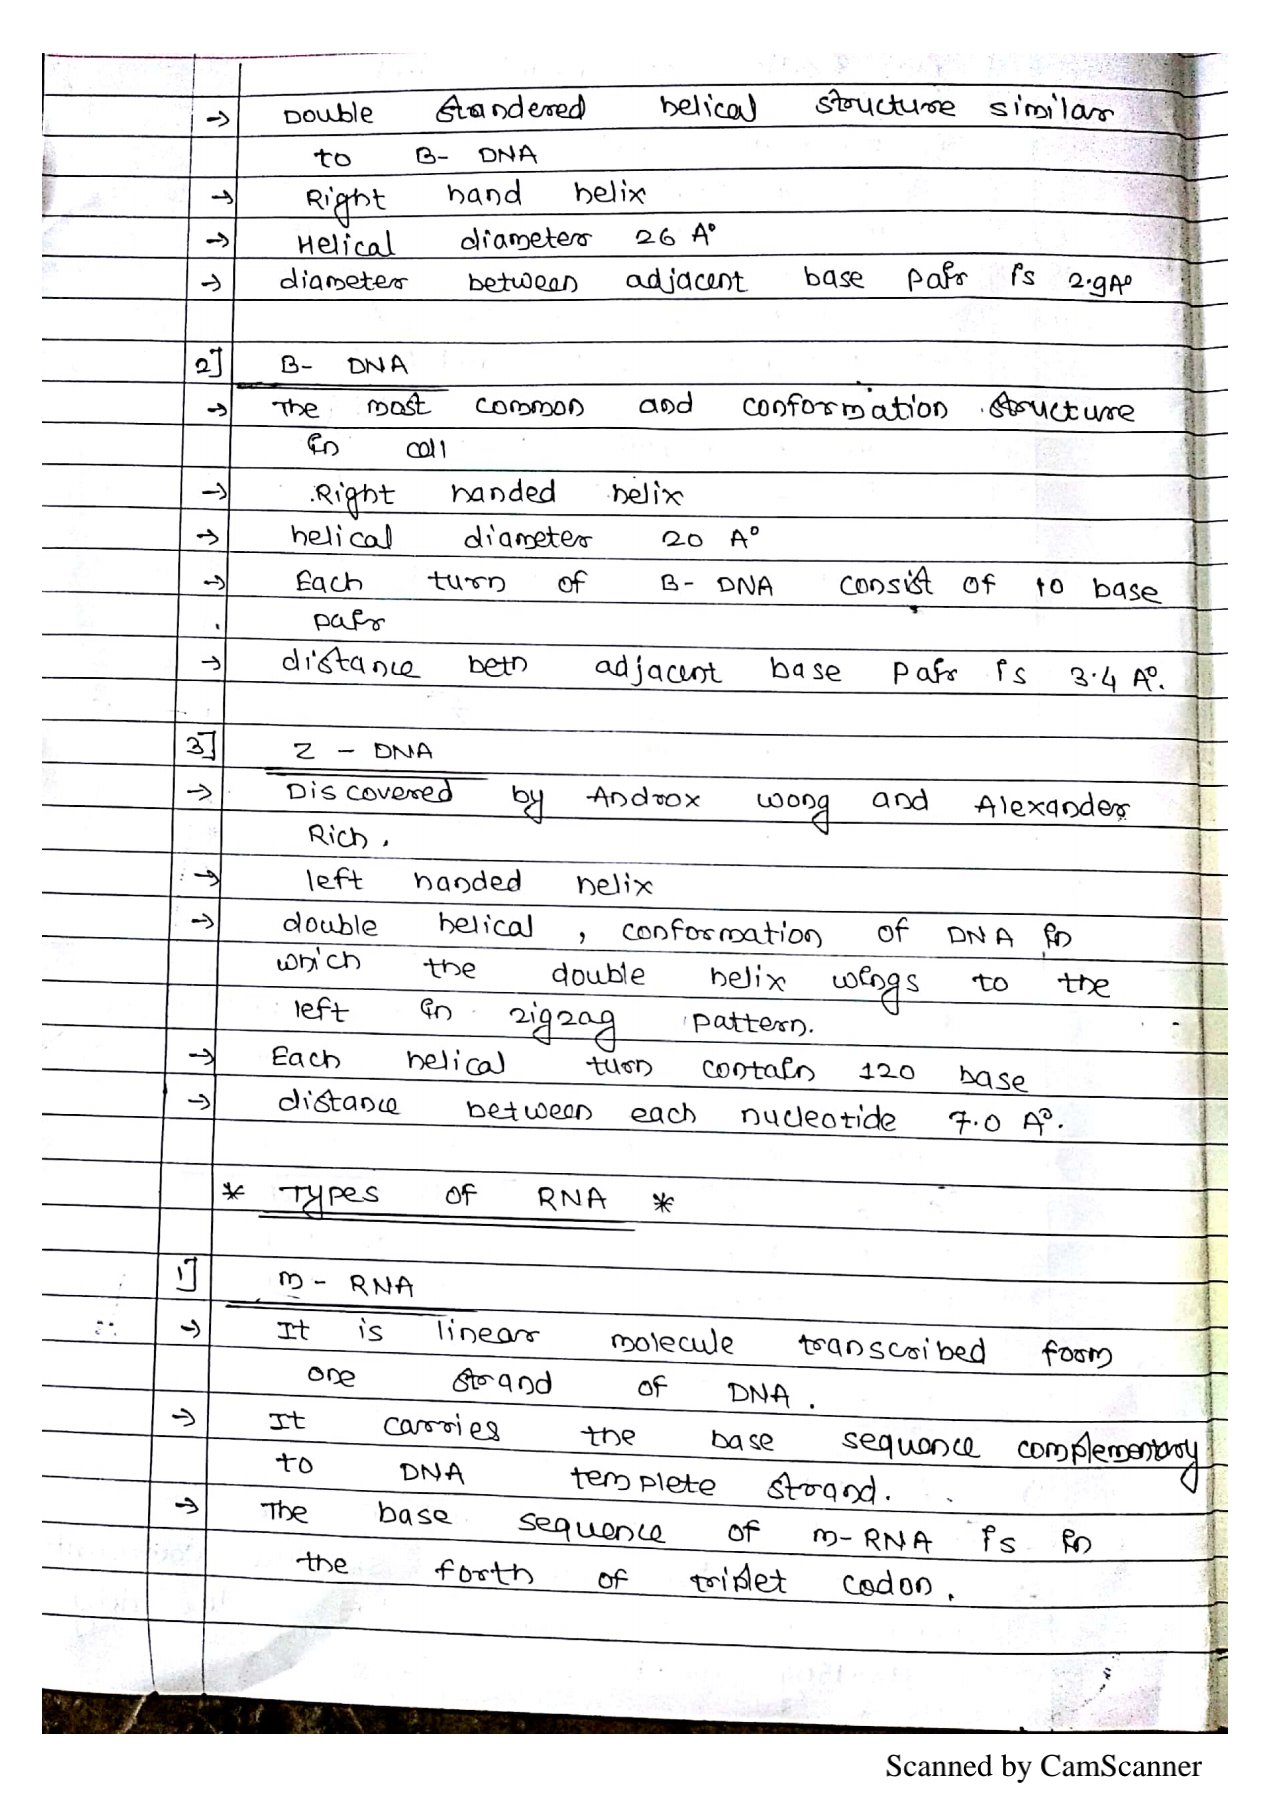 → Double standered helical structure similar
to B- DNA
→ Right hand helix
→ Helical diameter 26 A°
→ diameter between adjacent base pair is 2.9A°
2] B- DNA
→ The most common and conformation structure
in cell
→ Right handed helix
→ helical diameter 20 A°
→ Each turn of B- DNA consist of 10 base
pair
→ distance betn adjacent base pair is 3.4 A°.
3] Z - DNA
→ Discovered by Androx wong and Alexander
Rich.
→ left handed helix
→ double helical, conformation of DNA in
which the double helix wings to the
left in zigzag pattern.
→ Each helical turn contain 120 base
→ distance between each nucleotide 7.0 A°.
* Types of RNA *
1] m- RNA
→ It is linear molecule transcribed form
one strand of DNA.
→ It carries the base sequence complementary
to DNA templete strand.
→ The base sequence of m-RNA is in
the forth of triplet codon.
Scanned by CamScanner